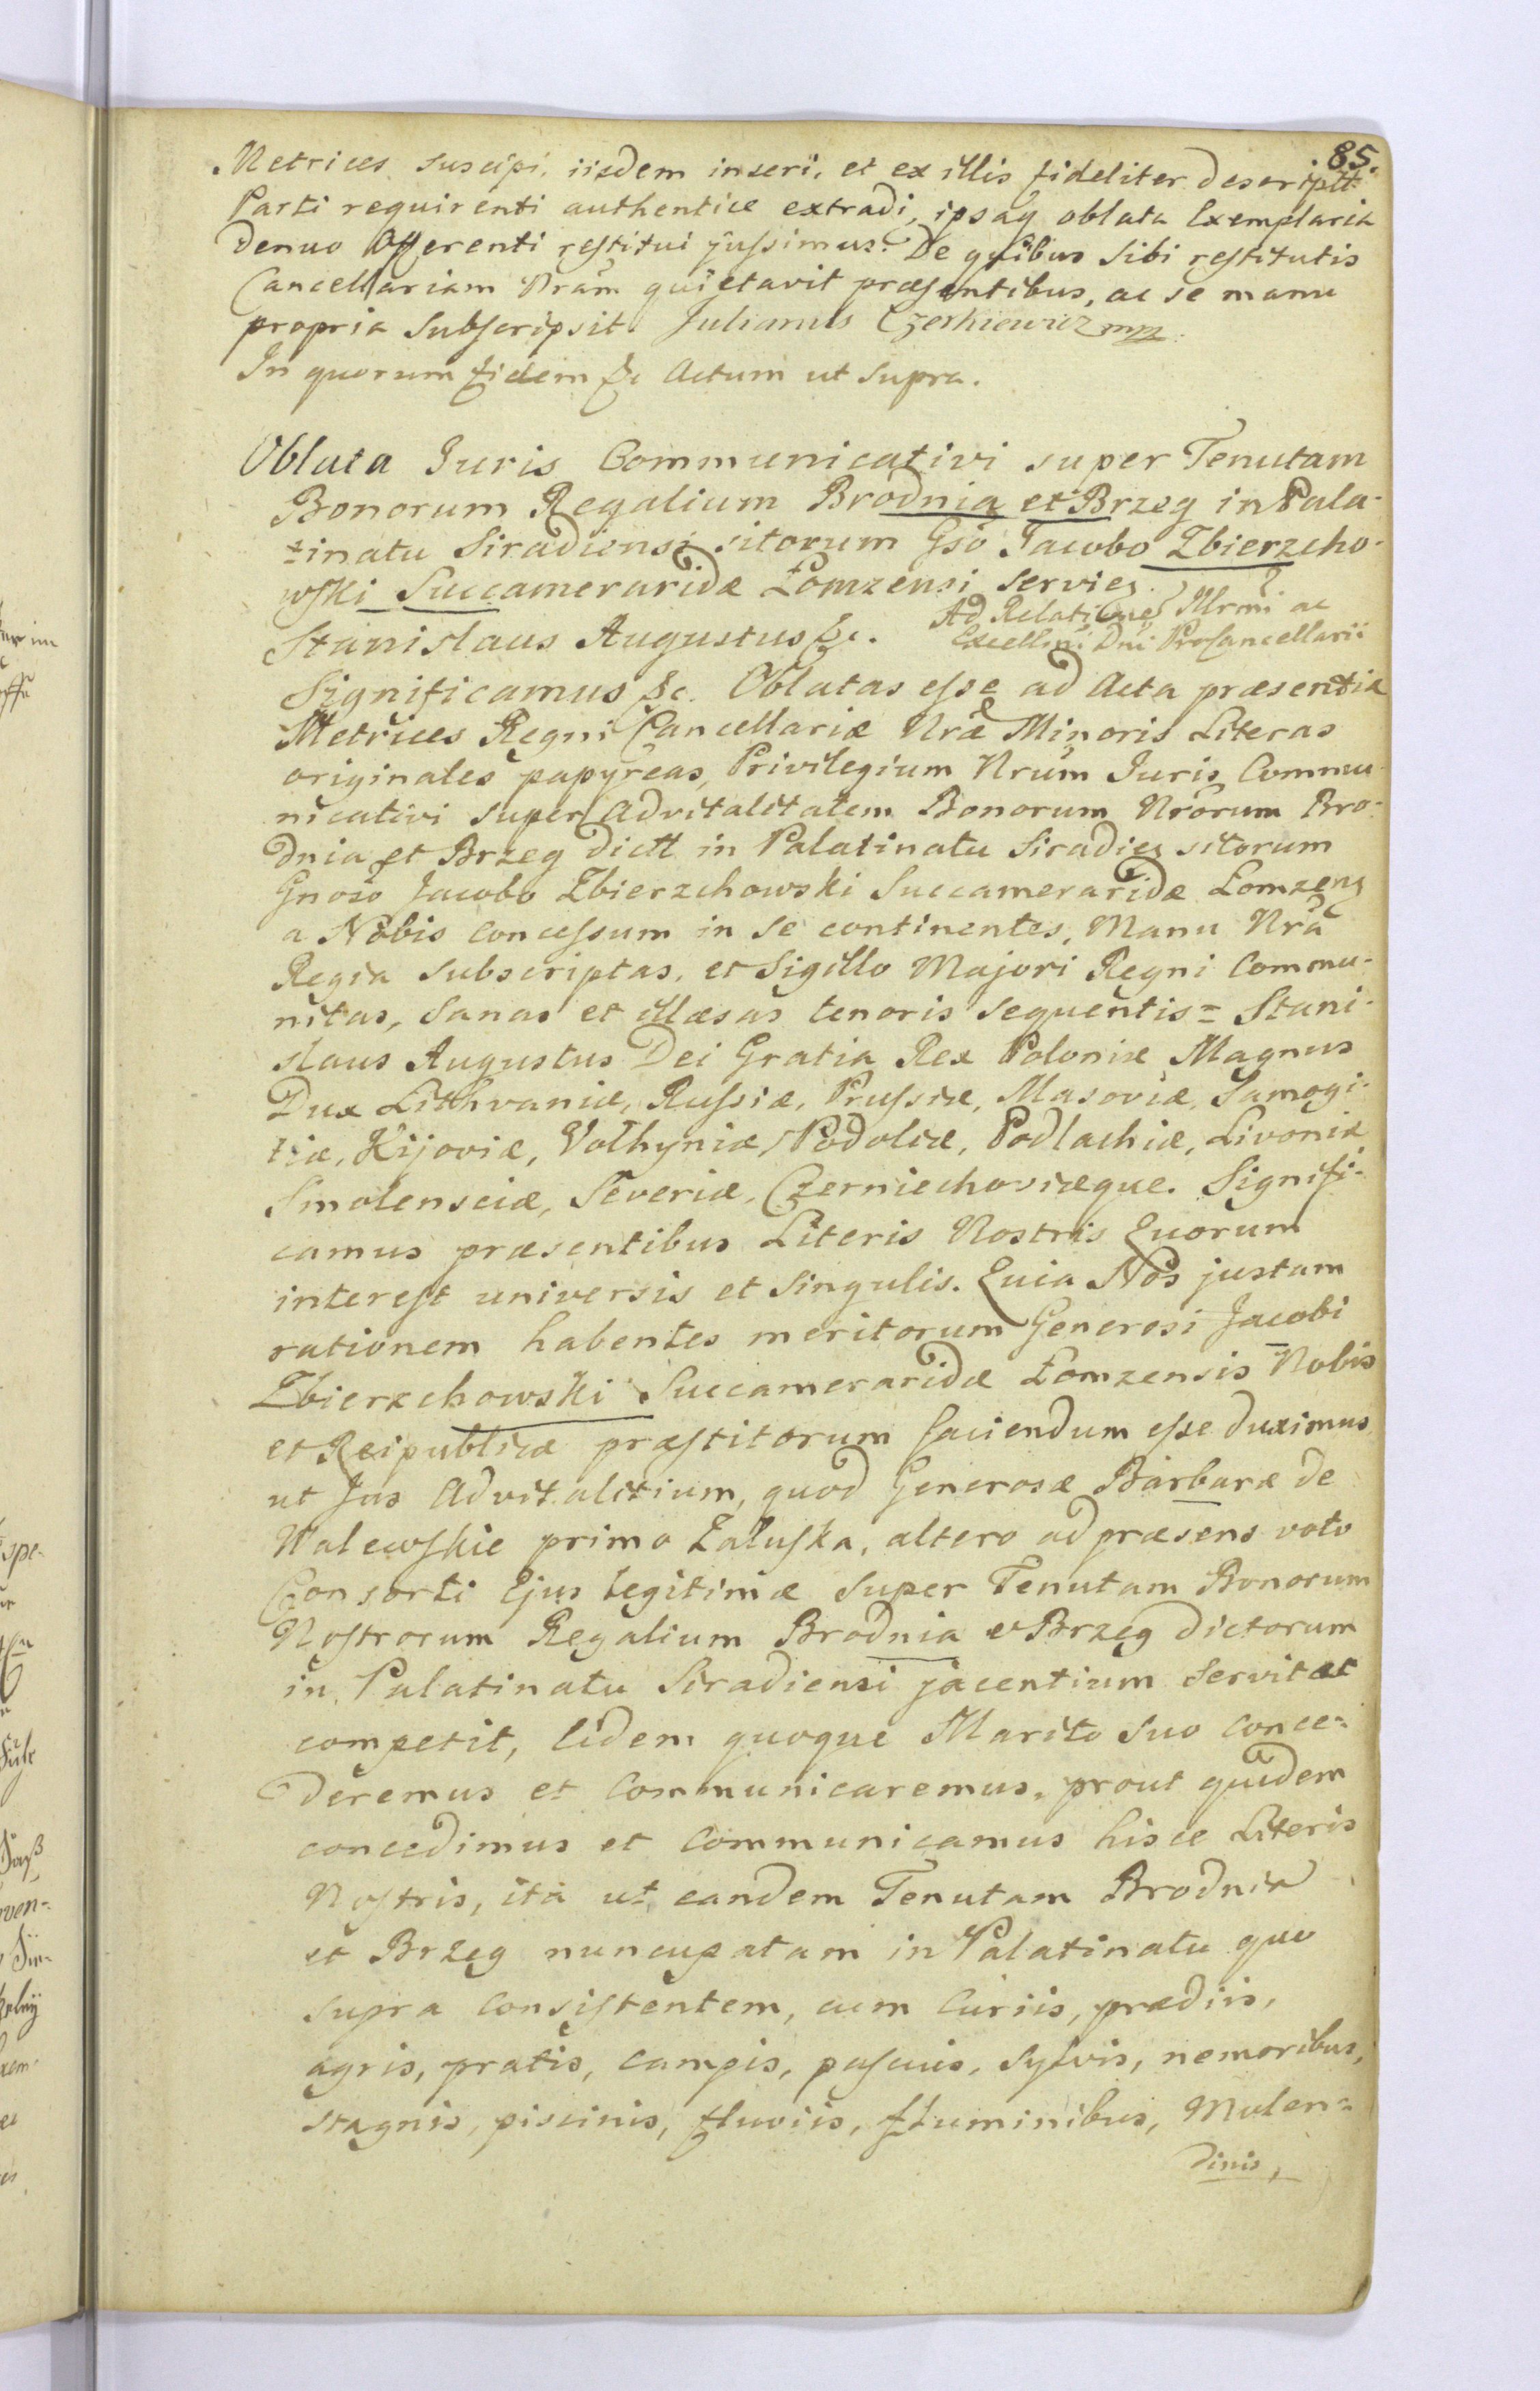 85.
Metrices suscipi, iisdem inseri, et ex illis fideliter descriptt
Parti requirenti authentice extradi, ipsaq oblata Exemplaria
denuo Offerenti restitui jussimus. De quibus sibi restitutis
Cancellariam Nram quietavit præsentibus, ac se manu
propria subscripsit. Julianus Czerkiewicz mpp
In quorum fidem &c Actum ut supra.
Oblata Juris Communicativi super Tenutam
Bonorum Regalium Brodnia et Brzeg in Pala-
tinatu Siradiensi sitorum Gso Jacobo Zbierzcho-
wski Succameraridæ Łomzensi servies.
Ad Relationes Illrmi ac
Excellmi Dni ProCancellarii
Stanislaus Augustus &c.
Significamus &c. Oblatas esse ad Acta præsentia
Metrices Regni Cancellariæ Nræ Minoris Literas
originales papyreas, Privilegium Nrum Juris Commu-
nicativi super Advitalitatem Bonorum Nrorum Bro-
dnia et Brzeg dictt in Palatinatu Siradies sitorum
Gnoso Jacobo Zbierzchowski Succameraridæ Łomzens
a Nobis concessum in se continentes, Manu Nra
Regia subscriptas, et Sigillo Majori Regni Commu-
nitas, sanas et illæsas tenoris sequentis = Stani-
slaus Augustus Dei Gratia Rex Poloniæ Magnus
Dux Lithvaniæ, Russiæ, Prussiæ, Masoviæ, Samogi-
tiæ, Kijoviæ, Volhyniæ, Podoliæ, Podlachiæ, Livoniæ
Smolensciæ, Severiæ, Czerniechoviæque. Signifi-
camus præsentibus Literis Nostris Quorum
interest universis et singulis. Quia Nos justam
rationem habentes meritorum Generosi Jacobi
Zbierzchowski Succameraridæ Łomzensis Nobis
et Reipublicæ præstitorum faciendum esse duximus
ut Jus Advitalitium, quod Generosæ Barbaræ de
Walewskie primo Załuska, altero ad præsens voto
Consorti Ejus legitimæ super Tenutam Bonorum
Nostrorum Regalium Brodnia et Brzeg dictorum
in Palatinatu Siradiensi jacentium servit et
competit, Eidem quoque Marito suo conce-
deremus et Communicaremus, prout quidem
concedimus et Communicamus hisce Literis
Nostris, ita ut eandem Tenutam Brodnia
et Brzeg nuncupatam in Palatinatu quo
supra consistentem, cum Curiis, prædiis,
agris, pratis, campis, pascuis, sylvis, nemoribus,
stagnis, piscinis, fluviis, fluminibus, Molen-
dinis,